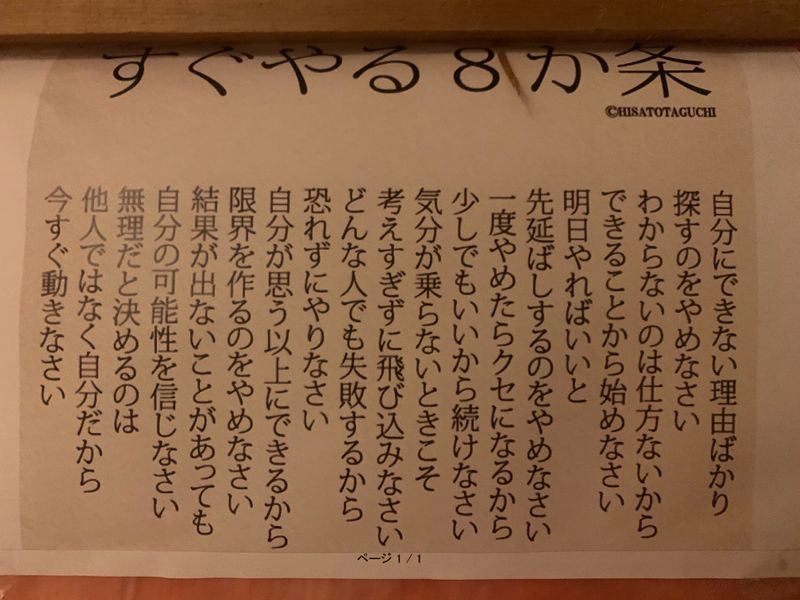 すぐやる8か条
©HISATOTAGUCHI
自分にできない理由ばかり
探すのをやめなさい
わからないのは仕方ないから
できることから始めなさい
明日やればいいと
先延ばしするのをやめなさい
一度やめたらクセになるから
少しでもいいから続けなさい
気分が乗らないときこそ
考えすぎずに飛び込みなさい
どんな人でも失敗するから
恐れずにやりなさい
自分が思う以上にできるから
限界を作るのをやめなさい
結果が出ないことがあっても
自分の可能性を信じなさい
無理だと決めるのは
他人ではなく自分だから
今すぐ動きなさい
ページ 1 / 1